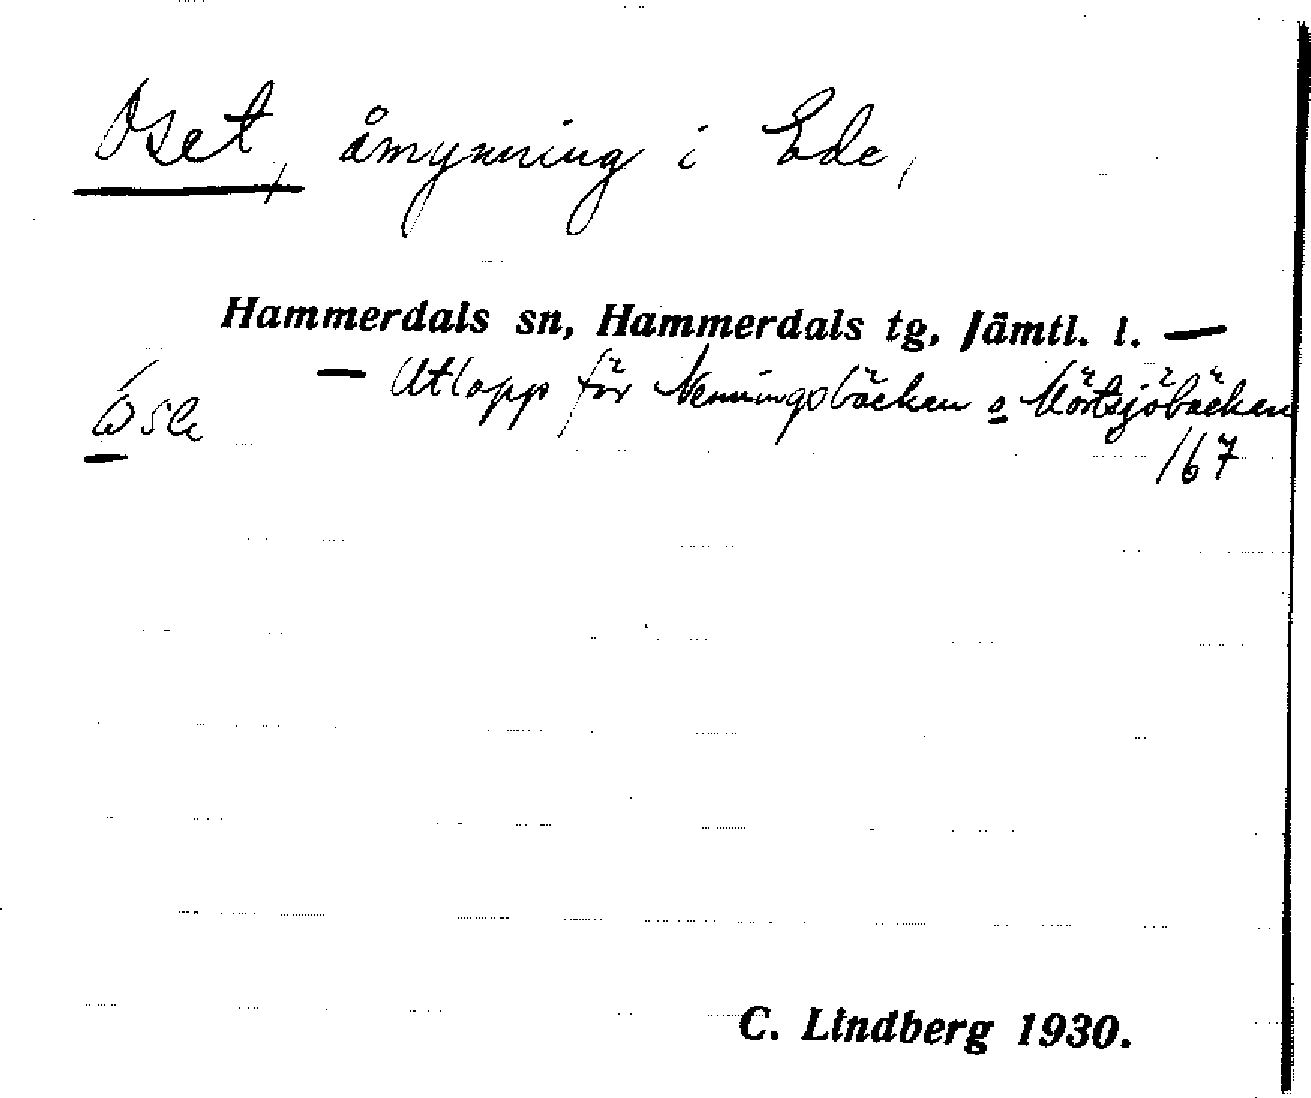 Oset, åmynning i Ede,
Hammerdals sn, Hammerdals tg, Jämtl. l. —
— Utlopp för Nenningsbäcken o Mörtsjöbäcken
167
C. Lindberg 1930.